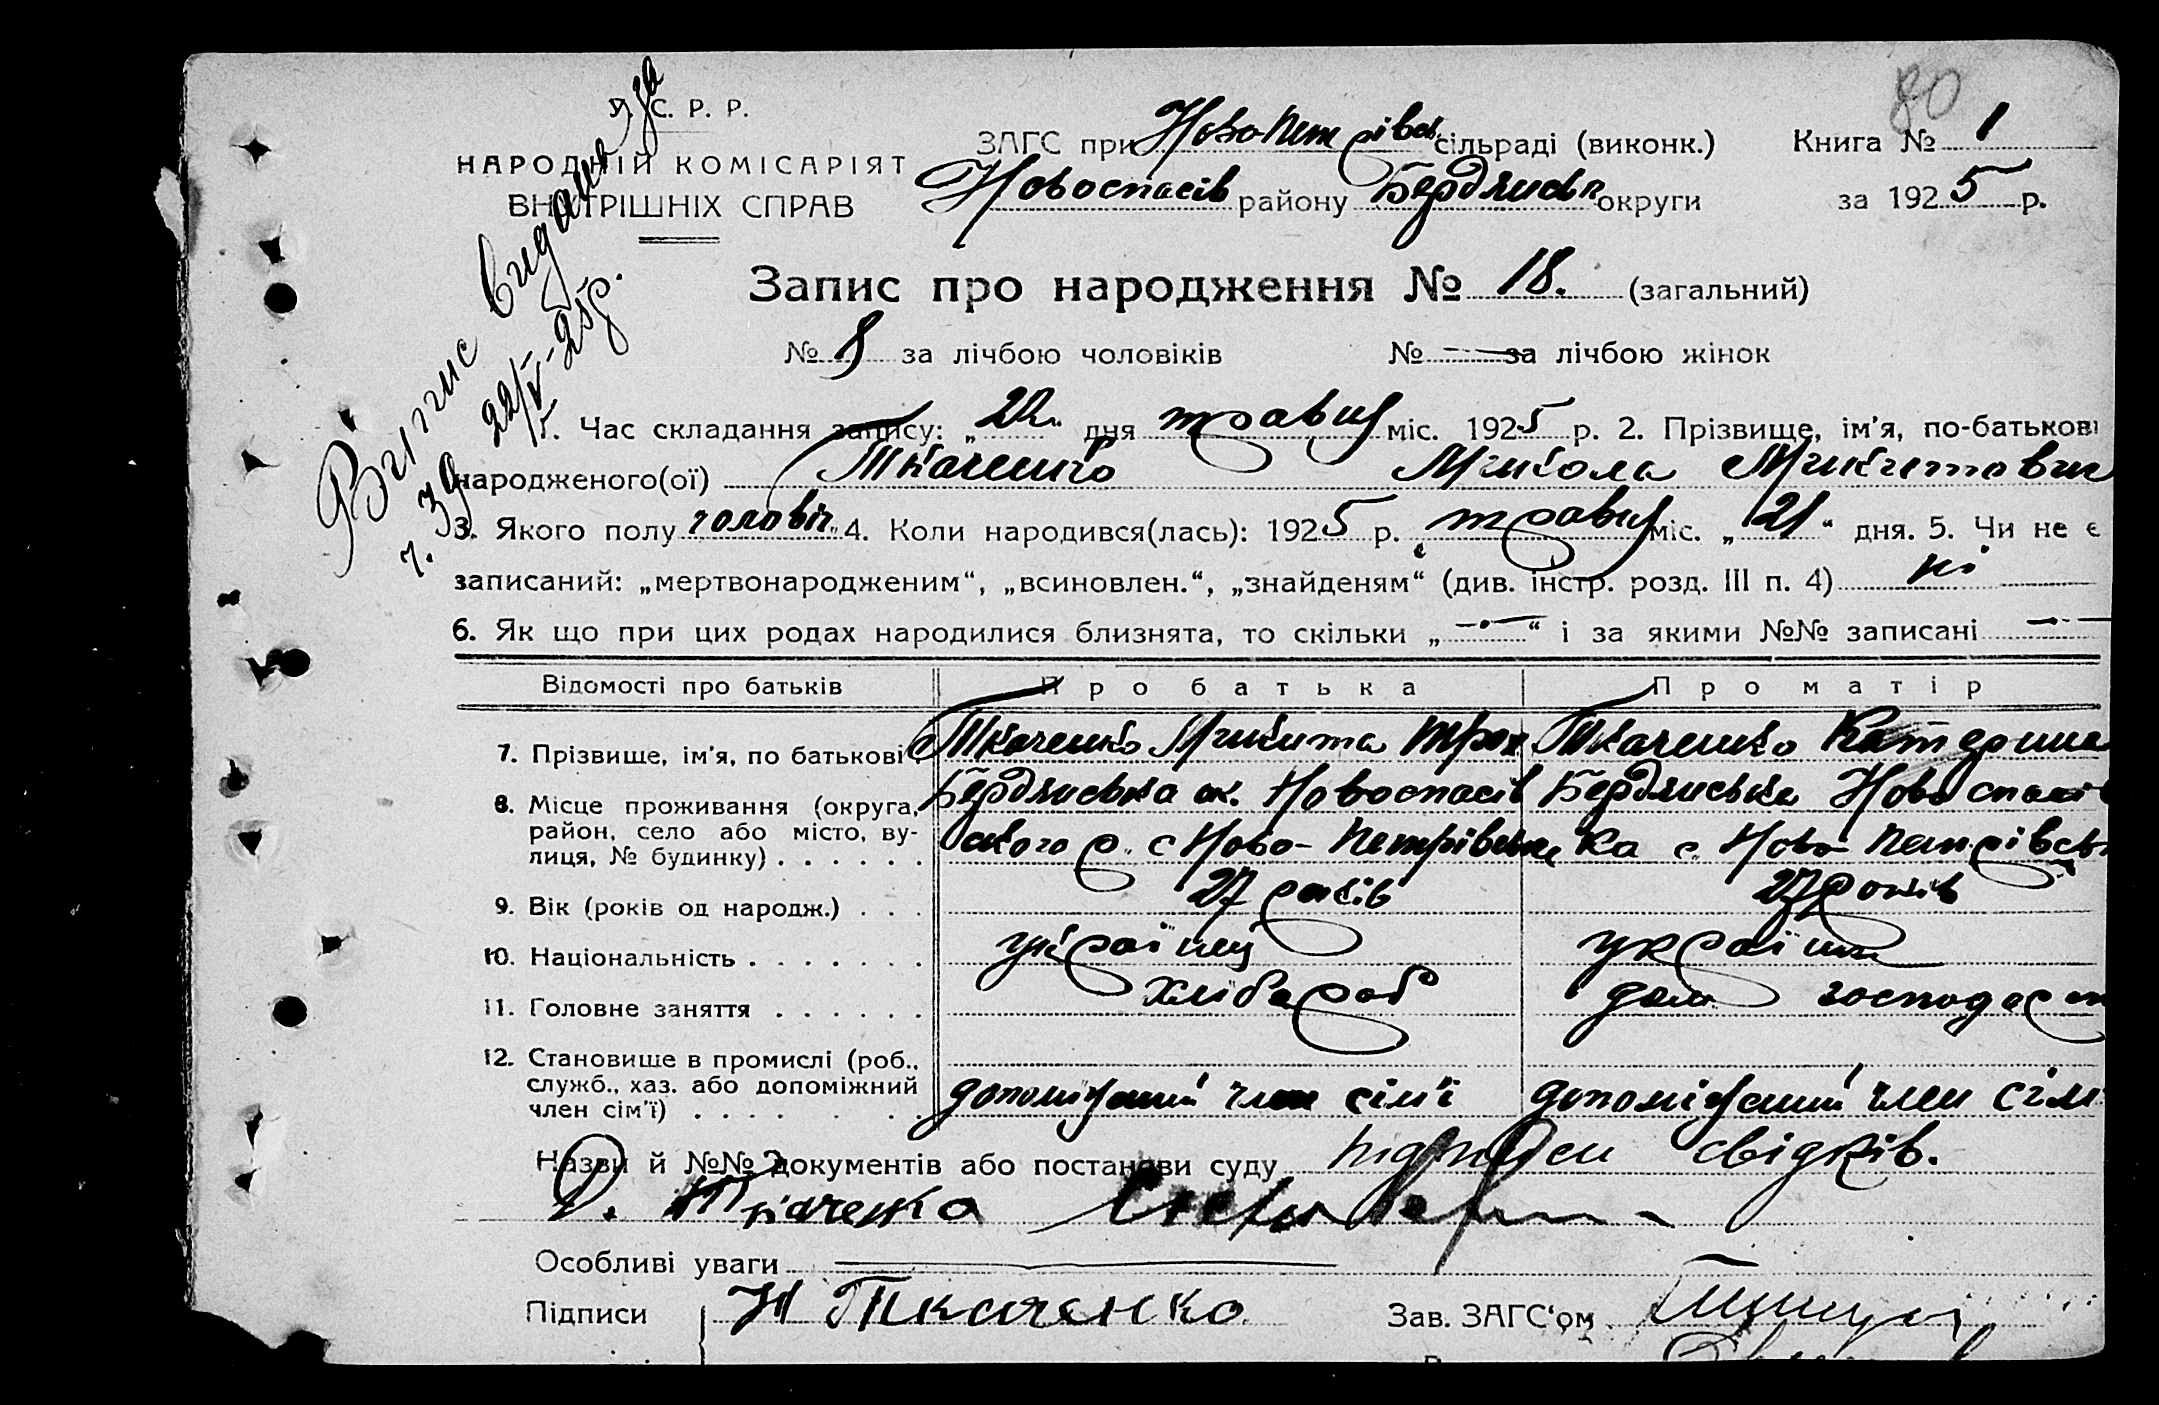 80
У. С. Р. Р.
НАРОДНІЙ КОМІСАРІЯТ
ВНУТРІШНІХ СПРАВ
ЗАГС при Ново-Петрівськ. сільраді (виконк.) Книга № 1
Новоспасів району Бердянськ округи за 1925 р.
Випис видано за
ч. 39 22/V-25р.
Запис про народження № 18. (загальний)
№ 8 за лічбою чоловіків № — за лічбою жінок
1. Час складання запису: „22" дня травня міс. 1925 р. 2. Прізвище, ім'я, по-батькові
народженого(ої) Ткаченко Микола Микитович
3. Якого полу чоловіч. 4. Коли народився(лась): 1925 р. травня міс. „21" дня. 5. Чи не є
записаний: „мертвонародженим", „всиновлен.", „знайденям" (див. інстр. розд. III п. 4) ні
6. Як що при цих родах народилися близнята, то скільки „—" і за якими №№ записані —
Відомості про батьків Про батька Про матір
7. Прізвище, ім'я, по батькові Ткаченко Микита Трох Ткаченко Катерина
8. Місце проживання (округа, район, село або місто, вулиця, № будинку) Бердянська ок. Новоспасівського р. с Ново-Петрівське Бердянська Новоспасівка с. Ново-Петрівськ
9. Вік (років од народж.) 27 років 27 років
10. Національність українц українка
11. Головне заняття хлібороб дом господарст
12. Становище в промислі (роб., служб., хаз. або допоміжний член сім'ї) допоміжний член сім'ї допоміжний член сім
Назви й №№ документів або постанови суду підписи свідків.
Д. Ткаченко
Особливі уваги
Підписи Н Ткаченко Зав. ЗАГС'ом